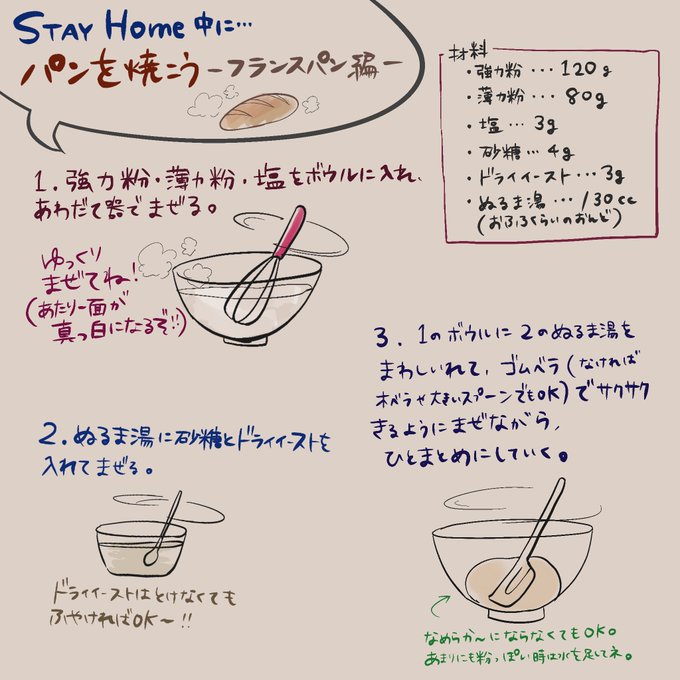 STAY Home 中に…
パンを焼こう
－フランスパン編－
材料
・強力粉…120g
・薄力粉…80g
・塩…3g
・砂糖…4g
・ドライイースト…3g
・ぬるま湯…130cc
(おふろくらいのおんど)
1.強力粉・薄力粉・塩をボウルに入れ、
あわだて器でまぜる。
ゆっくり
まぜてね!
(あたり一面が
真っ白になるぞ!!)
2.ぬるま湯に砂糖とドライイーストを
入れてまぜる。
ドライイーストはとけなくても
ふやければOK〜!!
3.1のボウルに2のぬるま湯を
まわしいれて、ゴムベラ(なければ
木ベラや大きいスプーンでもOK)でサクサク
きるようにまぜながら、
ひとまとめにしていく。
なめらか〜にならなくてもOK。
あまりにも粉っぽい時は水を足してネ。